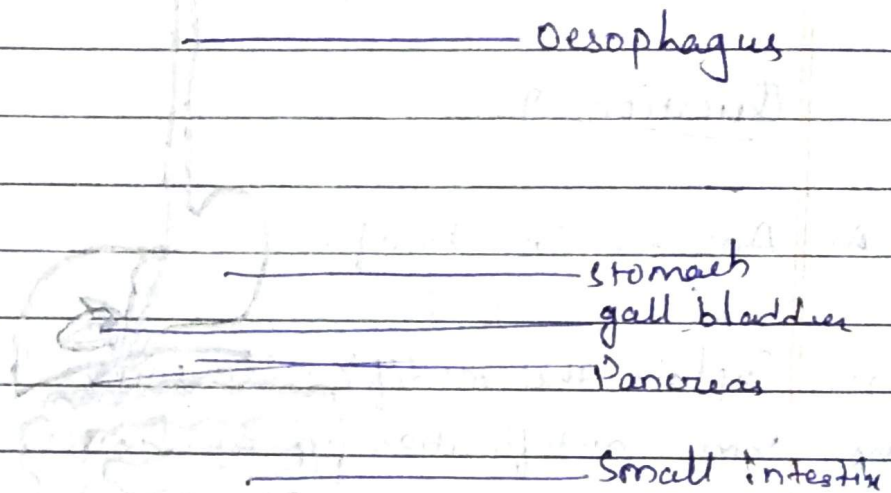 Oesophagus
stomach
gall bladder
Pancreas
Small intestin